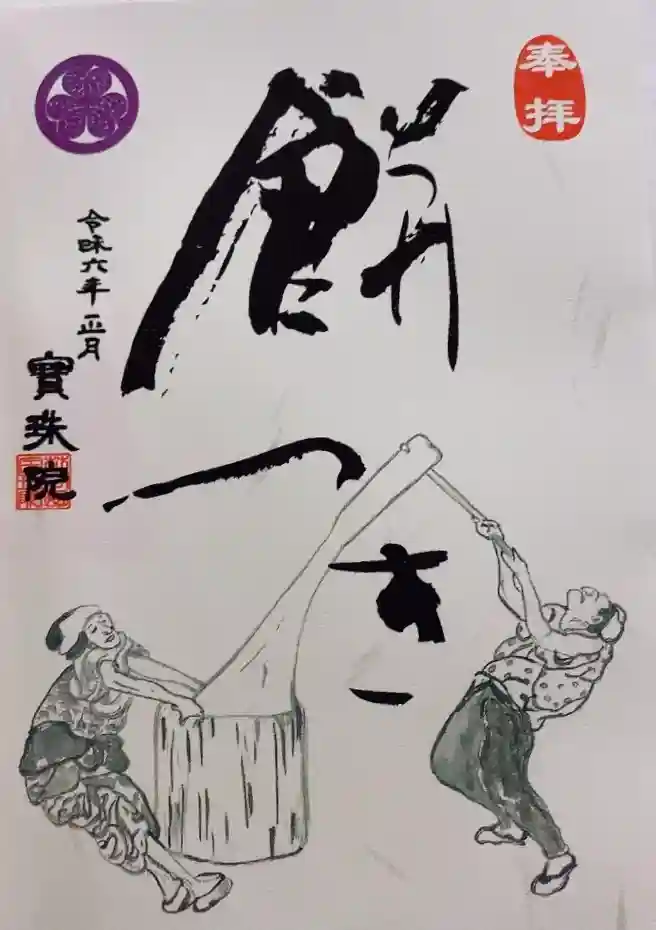 奉拝
餅つき
令和六年 正月
寶珠院